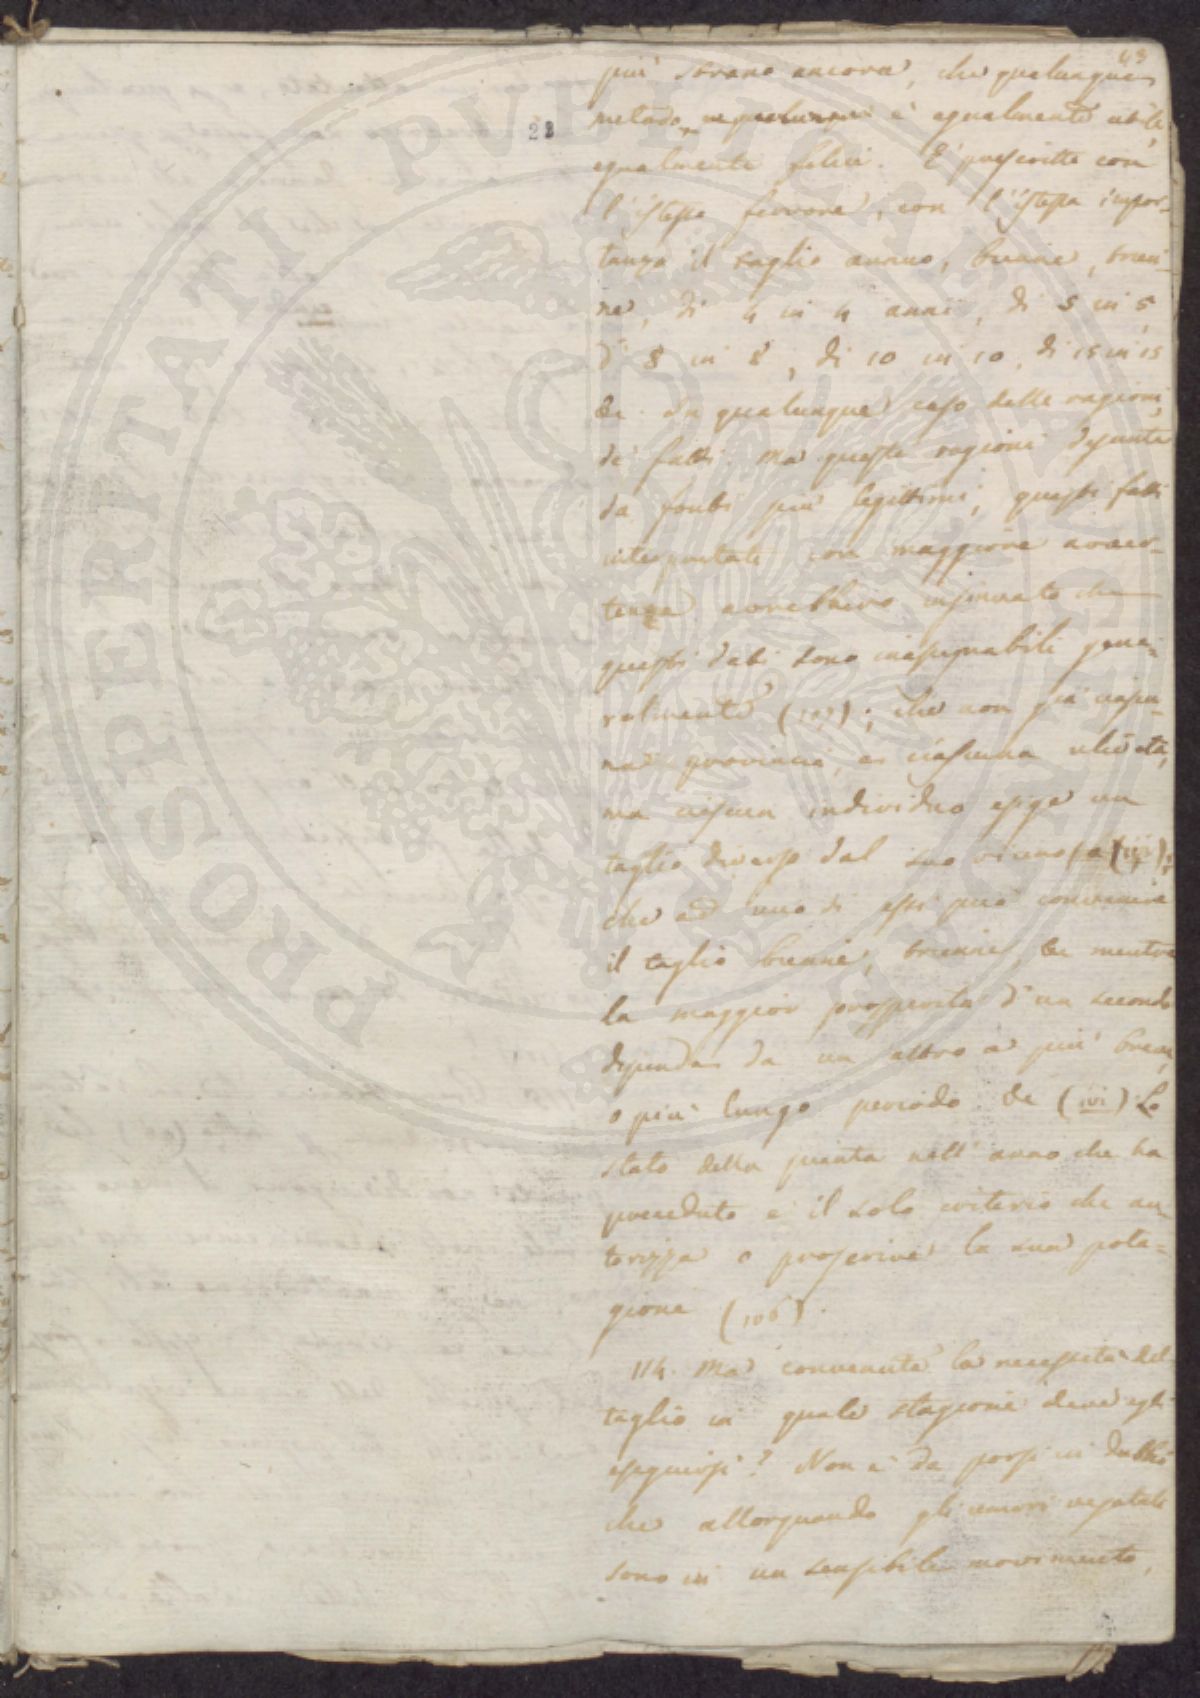 43
28
più strano ancora, che qualunque
metodo è egualmente utile,
egualmente felice. È prescritto con
l'istesso fervore, con l'istessa impor-
tanza il taglio annuo, bienne, trien-
ne, di 4 in 4 anni, di 5 in 5,
di 8 in 8, di 10 in 10, di 15 in 15
&c. In qualunque caso delle ragioni,
de' fatti. Ma queste ragioni dejunte
da fonti più legittimi, questi fatti
interpretati con maggiore avver-
tenza avrebbero insinuato che
questi dati sono inassegnabili gene-
ralmente (107); che non già ciascu-
na provincia, o ciascuna
ma ciascun individuo esige un
taglio diverso dal suo vicino (iv);
che ad uno di essi può convenire
il taglio bienne, trienne, &c mentre
la maggior prosperità d'un secondo
dipenda da un altro a più breve,
o più lungo periodo &c (ivi). Lo
stato della pianta nell'anno che ha
preceduto è il solo criterio che au-
torizza o proscrive la sua pota-
gione (106).
114. Ma convenuta la necessità del
taglio in quale stagione deve egli
eseguirsi? Non è da porsi in dubbio
che allorquando gli umori vegetali
sono in un sensibile movimento,
PROSPERITATI PVBLICAE AVGENDAE